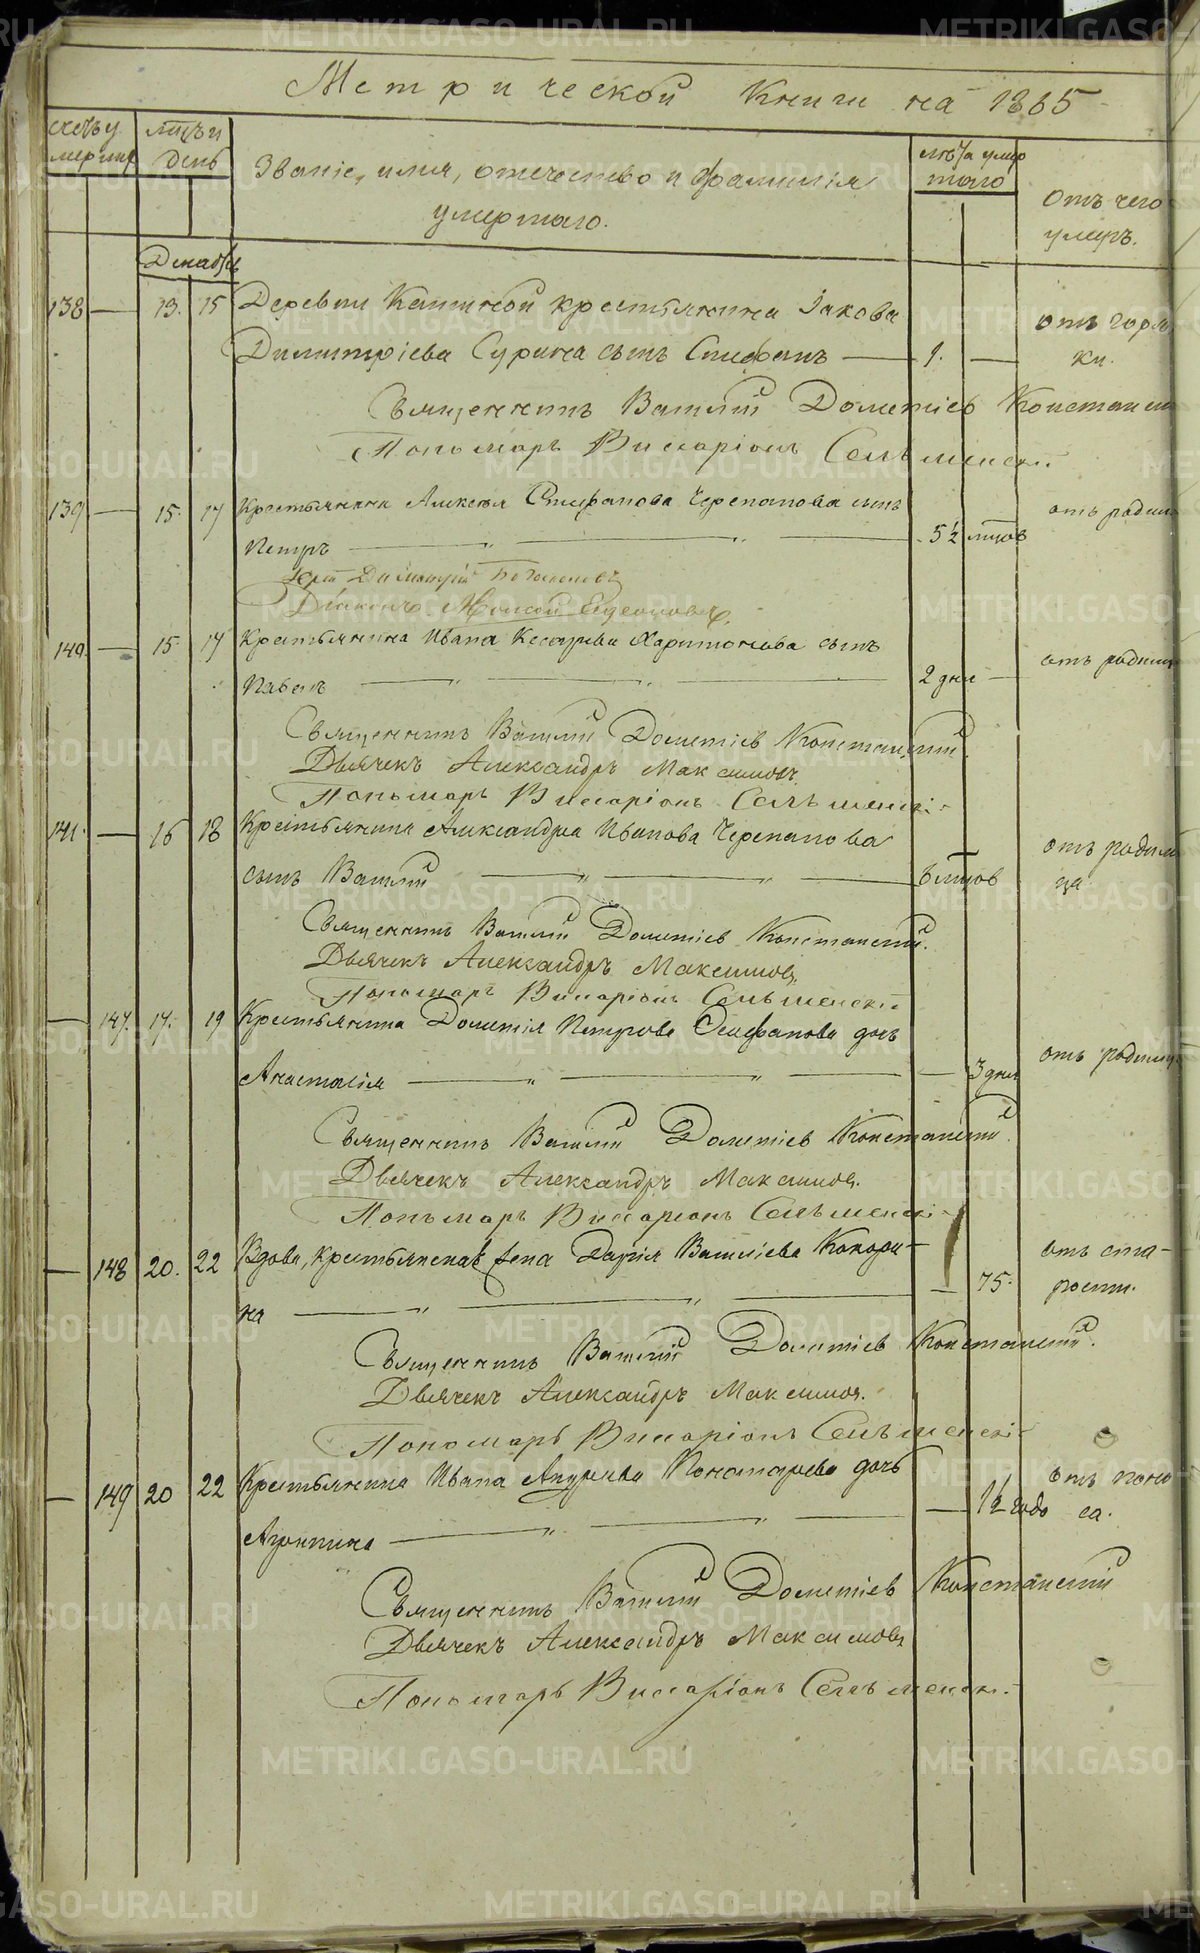 Метрической Книги на 1865
счетъ у
мерших
мцъ и
день
Званіе, имя, отечество и фамилія
умершаго.
лѣта умер
шаго
отъ чего
умеръ.
Декабрь
138 — 13. 15 Деревни Кашиной крестьянина Іакова
Димитріева Сурина сынъ Стефанъ — 1. —
отъ горя
ки.
Священникъ Василій Дометіев Констанс
Пономарь Виссаріонъ Селъменскі
139 — 15. 17 Крестьянина Алексѣя Стефанова Черепанова сынъ
Петръ — „ — „ — 5½ мцов
отъ родим
Іерей Димитрій
Діаконъ Моисей
140. — 15 17 Крестьянина Ивана Харитонова сынъ
Павелъ — „ — „ — 2 дня —
отъ родим
Священникъ Василій Дометіев Констанскій
Дьячекъ Александръ Максимов
Пономарь Виссаріонъ Селъменскі
141. — 16 18 Крестьянина Александра Иванова Черепанова
сынъ Василій — „ — „ — 6 мцов
отъ родим
ца
Священникъ Василій Дометіев Констанскій.
Дьячекъ Александръ Максимов
Пономарь Виссаріонъ Селъменскі
— 147. 17. 19 Крестьянина Дометія Петрова Стефанова дочь
Анастасія — „ — „ — — 3 дня
отъ родим
Священникъ Василій Дометіев Констанскій.
Дьячекъ Александръ Максимов.
Пономарь Виссаріонъ Селъменскі
— 148 20. 22 Вдова, крестьянская жена Дарія Василіева Кокори-
на — „ — „ — — 75.
отъ ста-
рости.
Священникъ Василій Дометіев Констанскій.
Дьячекъ Александръ Максимов.
Пономарь Виссаріонъ Селъменскі
— 149 20 22 Крестьянина Ивана Андреева Пономарева дочь
Агрипина — „ — „ — — 1½ годо
отъ поно
са.
Священникъ Василій Дометіев Констанскій
Дьячекъ Александръ Максимовъ
Пономарь Виссаріонъ Селъменскі.
METRIKI.GASO-URAL.RU